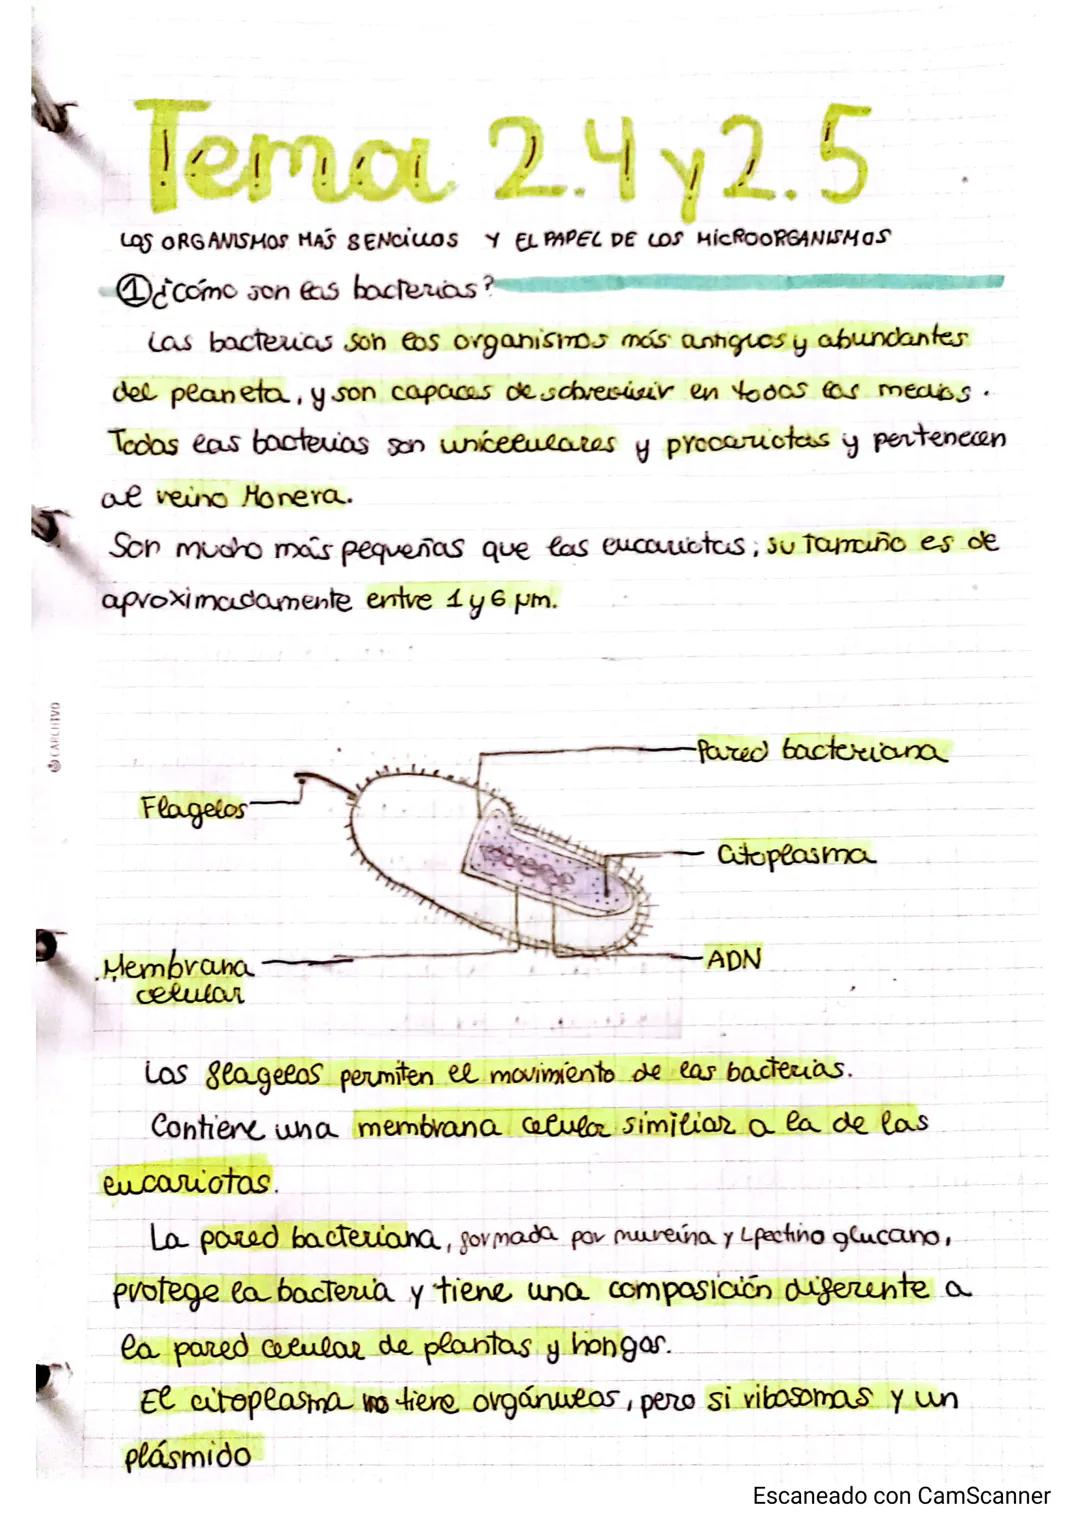 Tema 2.4 y 2.5
LOS ORGANISMOS MÁS SENCILLOS Y EL PAPEL DE LOS MICROORGANISMOS
① ¿Cómo son las bacterias?
Las bacterias son los organismos más antiguos y abundantes
del planeta, y son capaces de sobrevivir en todos los medios.
Todas las bacterias son unicelulares y procariotas y pertenecen
al reino Monera.
Son mucho más pequeñas que las eucariotas; su tamaño es de
aproximadamente entre 1 y 6 µm.
Pared bacteriana
Flagelos
Citoplasma
Membrana
celular
ADN
Los flagelos permiten el movimiento de las bacterias.
Contiene una membrana celular similiar a la de las
eucariotas.
La pared bacteriana, formada por mureína y Lpectino glucano,
protege la bacteria y tiene una composición diferente a
la pared celular de plantas y hongos.
El citoplasma no tiene orgánulos, pero si ribosomas y un
plásmido
Escaneado con CamScanner